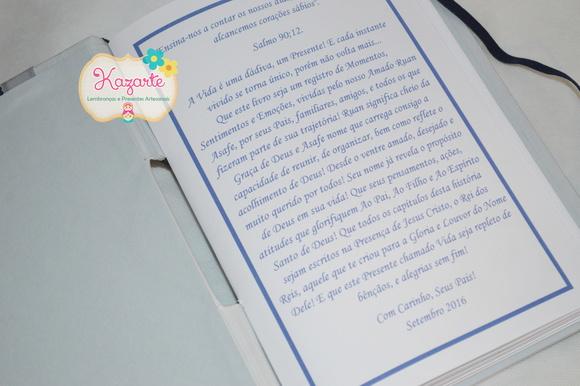 Kazarte
Lembranças e Presentes Artesanais
"Ensina-nos a contar os nossos
alcancemos corações sábios".
Salmo 90:12.
A Vida é uma dádiva, um Presente! E cada instante
vivido se torna único, porém não volta mais...
Que este livro seja um registro de Momentos,
Sentimentos e Emoções, vividas pelo nosso Amado Ruan
Asafe, por seus Pais, familiares, amigos, e todos os que
fizeram parte de sua trajetória! Ruan significa cheio da
Graça de Deus e Asafe nome que carrega consigo a
capacidade de reunir, de organizar, bem como reflete o
acolhimento de Deus! Desde o ventre amado, desejado e
muito querido por todos! Seu nome já revela o propósito
de Deus em sua vida! Que seus pensamentos, ações,
atitudes que glorifiquem Ao Pai, Ao Filho e Ao Espírito
Santo de Deus! Que todos os capítulos desta história
sejam escritos na Presença de Jesus Cristo, o Rei dos
Reis, aquele que te criou para a Gloria e Louvor do Nome
Dele! E que este Presente chamado Vida seja repleto de
bênçãos, e alegrias sem fim!
Com Carinho, Seus Pais!
Setembro 2016